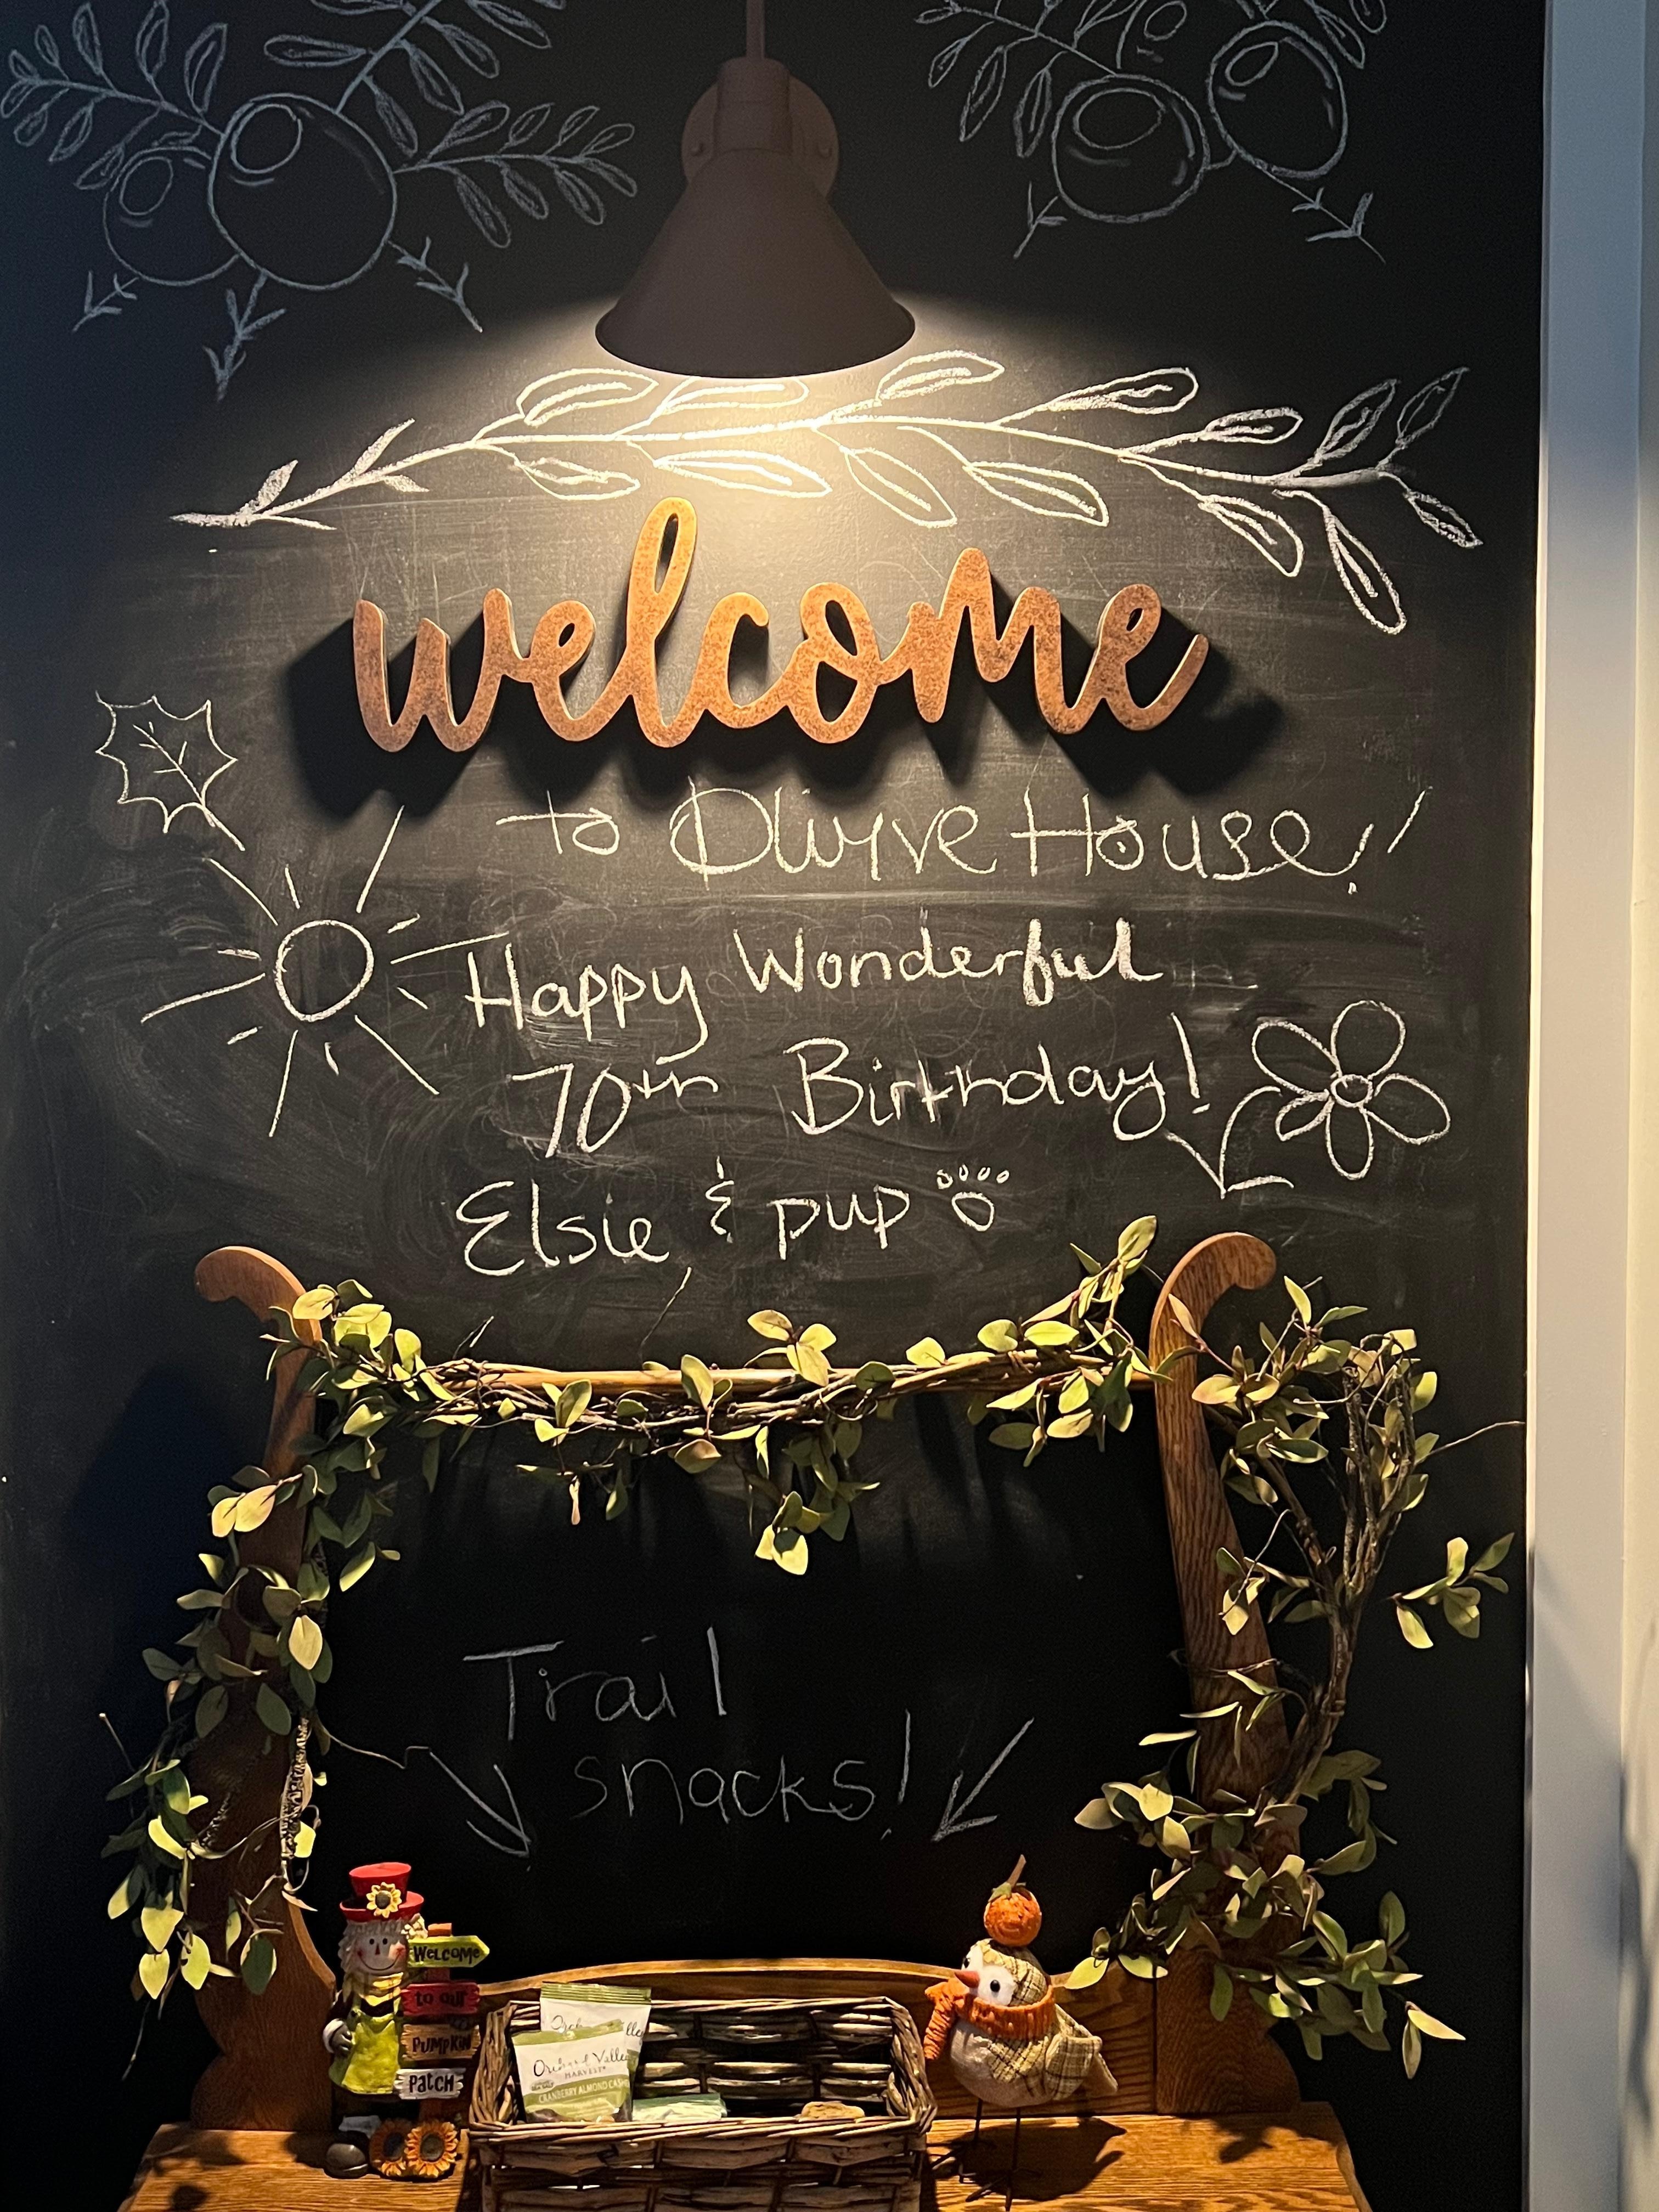 welcome
to Olivyve House!
Happy Wonderful
70th Birthday!
Elsie & pup
Trail
snacks!
WELCOME
to our
PUMPKIN
PATCH
Orchard Valley
HARVEST
CRANBERRY ALMOND CASHEW